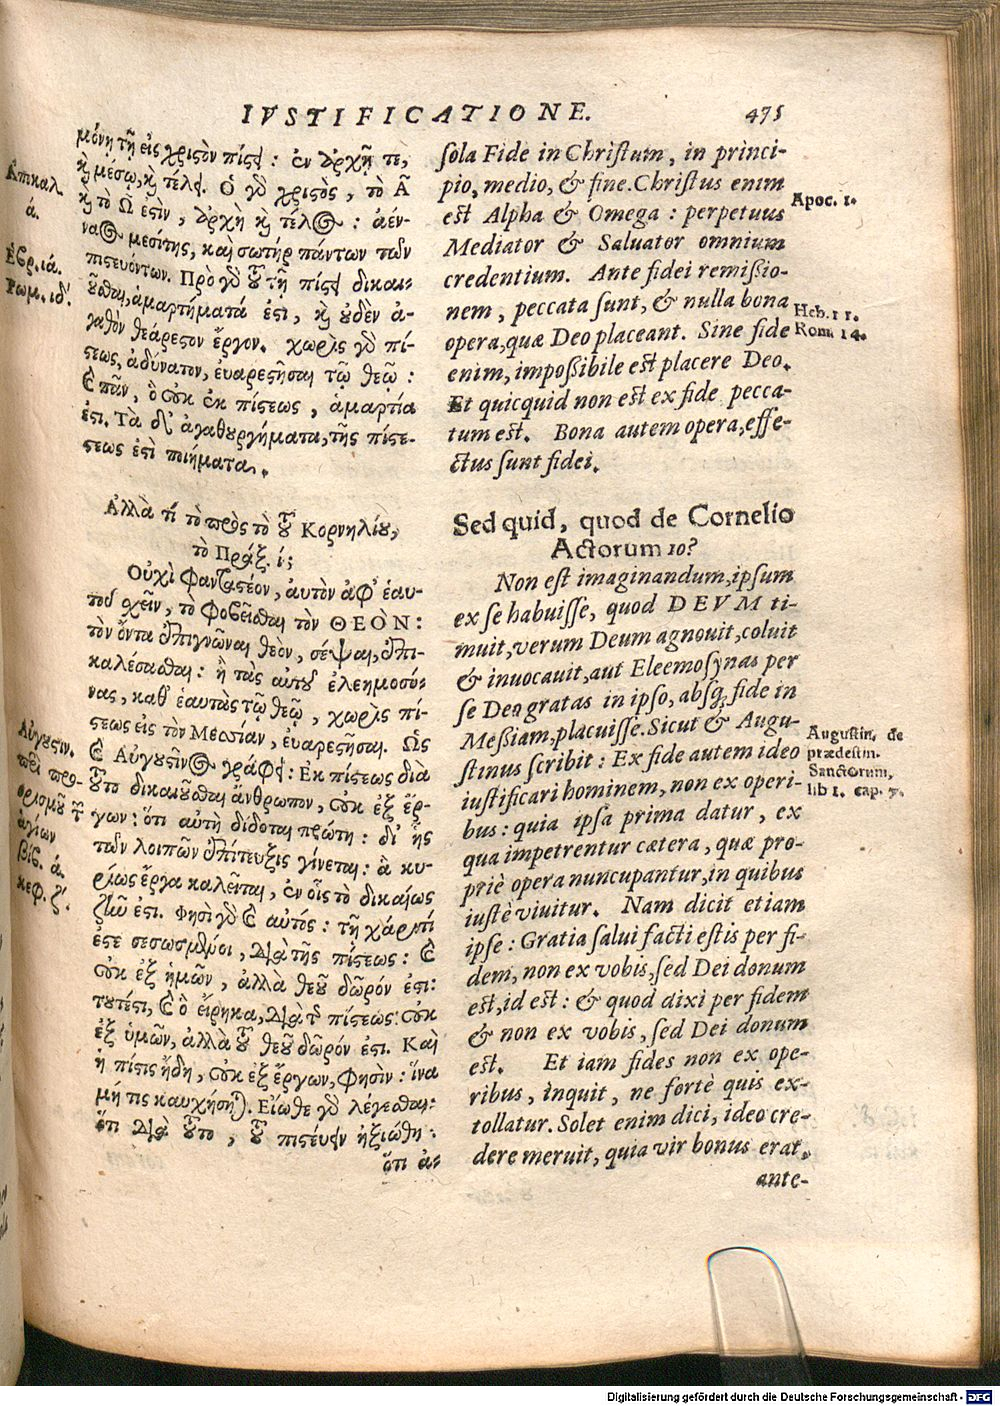 IVSTIFICATIONE. 475
μόνῃ τῇ εἰς χριστὸν πίστει: ἐν ἀρχῇ τε,
καὶ μέσῳ, καὶ τέλει. Ὁ γὸ χριστὸς, τὸ Α
καὶ τὸ Ω ἐστὶν, ἀρχὴ καὶ τέλος: ἀέν-
ναος μεσίτης, καὶ σωτήρ πάντων τῶν
πιστευόντων. Πρὸ γὸ τοῦ τῇ πίστει δικαι-
οῦσθαι, ἁμαρτήματά ἐστι, καὶ οὐδὲν ἀ-
γαθὸν θεάρεστον ἔργον. χωρὶς γὸ πί-
στεως, ἀδύνατον, ἐυαρεστῆσαι τῷ θεῷ:
καὶ πᾶν, ὃ οὐκ ἐκ πίστεως, ἁμαρτία
ἐστι. Τὰ δὲ ἀγαθουργήματα, τῆς πίστε-
στεως ἐστὶ ποιήματα.
Ἀποκαλ.
ά.
Ἑβρ. ιά.
Ρωμ. ιδ'.
Ἀλλὰ τί τὸ πρὸς τὸ τοῦ Κορνηλίου,
τὸ Πράξ. ί;
Οὐχὶ φανταστέον, ἀυτὸν ἀφ' ἑαυ-
τοῦ σχεῖν, τὸ φοβεῖσθαι τὸν ΘΕΟΝ:
τὸν ὄντα ἐπιγνῶναι θεὸν, σέψαι, ἐπι-
καλέσασθαι: ἢ τὰς αὐτοῦ ἐλεημοσύ-
νας, καθ' ἑαυτὰς τῷ θεῷ, χωρὶς πί-
στεως εἰς τὸν Μεσσίαν, ἐυαρεστῆσαι. Ὡς
καὶ Αὐγουστῖνος γράφει: Ἐκ πίστεως διὰ
τοῦτο δικαιοῦσθαι ἄνθρωπον, οὐκ ἐξ ἔρ-
γων: ὅτι αὐτὴ δίδοται πρώτη: δι' ἧς
τῶν λοιπῶν ἐπίτευξις γίνεται: ἃ κυ-
ρίως ἔργα καλεῖται, ἐν οἷς τὸ δικαίως
ζῆν ἐστι. φησὶ γὸ καὶ αὐτός: τῇ χάριτί
ἐστε σεσωσμένοι, διὰ τῆς πίστεως: καὶ
οὐκ ἐξ ἡμῶν, ἀλλὰ θεοῦ δῶρόν ἐστι:
τουτέστι, καὶ ὃ εἴρηκα, διὰ τῆς πίστεως: οὐκ
ἐξ ὑμῶν, ἀλλὰ τοῦ θεοῦ δῶρόν ἐστι. Καὶ
ἡ πίστις ἤδη, οὐκ ἐξ ἔργων, φησὶν: ἵνα
μή τις καυχήσηται. Εἴωθε γὸ λέγεσθαι:
ὅτι διὰ τοῦτο, τοῦ πιστέυειν ἠξιώθη:
ὅτι ἀ-
Αὐγουστιν.
περὶ προ-
ορισμοῦ τῶν
ἁγίων
βιβ. ά.
κεφ. ζ'.
sola Fide in Christum, in princi-
pio, medio, & fine. Christus enim
est Alpha & Omega: perpetuus
Mediator & Saluator omnium
credentium. Ante fidei remißio-
nem, peccata sunt, & nulla bona
opera, quæ Deo placeant. Sine fide
enim, impoßibile est placere Deo.
Et quicquid non est ex fide pecca-
tum est. Bona autem opera, effe-
ctus sunt fidei.
Apoc. 1.
Heb. 11.
Rom. 14.
Sed quid, quod de Cornelio
Actorum 10?
Non est imaginandum, ipsum
ex se habuisse, quod DEVM ti-
muit, verum Deum agnouit, coluit
& inuocauit, aut Eleemosynas per
se Deo gratas in ipso, absq; fide in
Meßiam, placuisse. Sicut & Augu-
stinus scribit: Ex fide autem ideo
iustificari hominem, non ex operi-
bus: quia ipsa prima datur, ex
qua impetrentur cætera, quæ pro-
priè opera nuncupantur, in quibus
iustè viuitur. Nam dicit etiam
ipse: Gratia salui facti estis per fi-
dem, non ex vobis, sed Dei donum
est, id est: & quod dixi per fidem
& non ex vobis, sed Dei donum
est. Et iam fides non ex ope-
ribus, inquit, ne fortè quis ex-
tollatur. Solet enim dici, ideo cre-
dere meruit, quia vir bonus erat,
ante-
Augustin. de
prædestin.
Sanctorum,
lib 1. cap. 7.
Digitalisierung gefördert durch die Deutsche Forschungsgemeinschaft - DFG